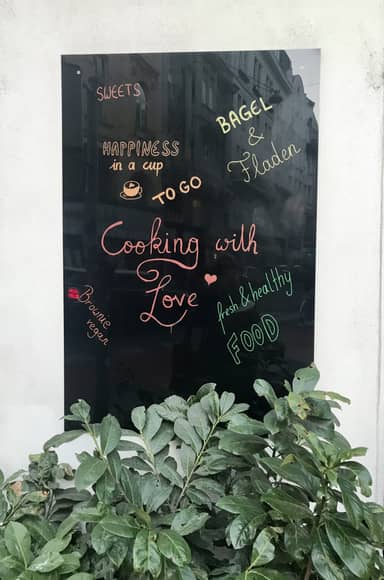 SWEETS
BAGEL
&
Fladen
HAPPINESS
in a cup
TO GO
Cooking with
Love
Brownie
vegan
fresh & healthy
FOOD